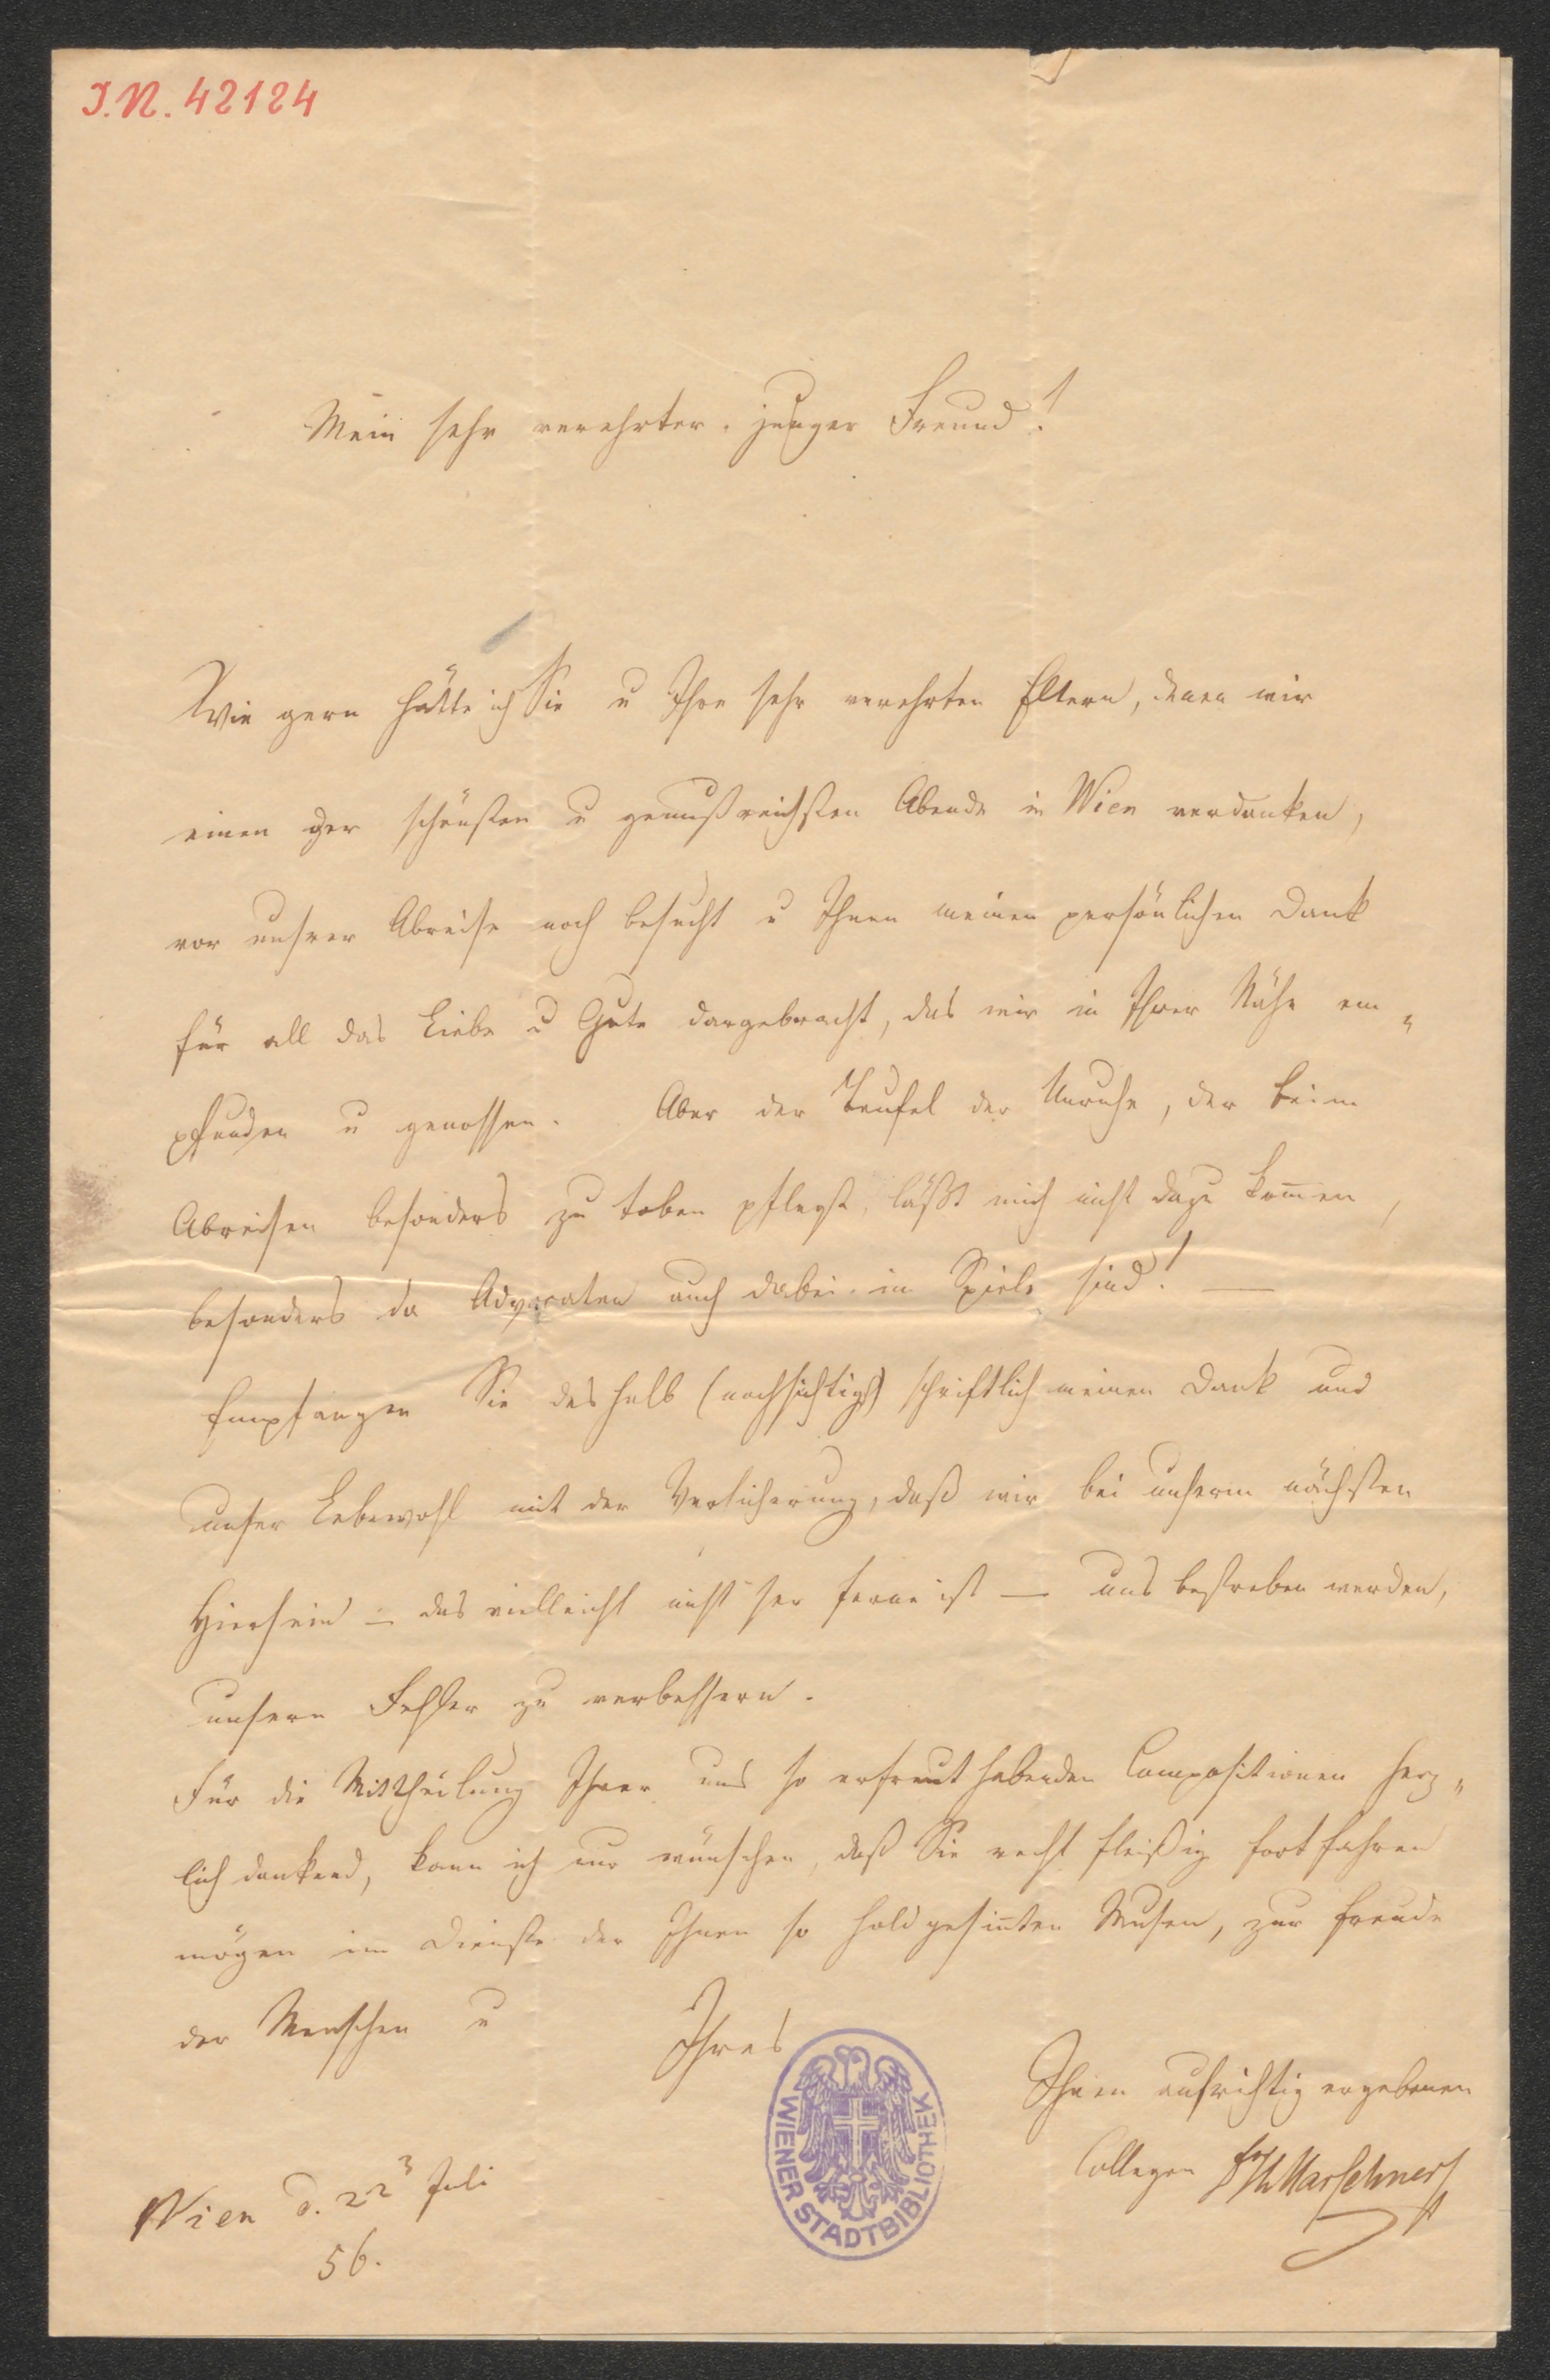 I.N. 42124
Mein sehr verehrter junger Freund!
Wie gern hätte ich Sie u Ihre sehr verehrten Eltern, denen wir
einen der schönsten u genußreichsten Abende in Wien verdanken,
vor unsrer Abreise noch besucht u Ihnen meinen persönlichen Dank
für all das Liebe u Gute dargebracht, das wir in Ihrer Nähe em„
pfunden u genossen. Aber der Teufel der Unruhe, der beim
Abreisen besonders zu toben pflegt, läßt mich nicht dazu kom̄en,
besonders da Advocaten auch dabei im Spiele sind! —
Empfangen Sie deshalb (nachsichtigst) schriftlich meinen Dank und
unser Lebewohl mit der Versicherung, daß wir bei unserm nächsten
Hiersein — das vielleicht nicht ferne ist — uns bestreben werden,
unsern Fehler zu verbessern.
Für die Mittheilung Ihrer uns so erfreut habenden Compositionen herz„
lich dankend, kann ich nur wünschen, daß Sie recht fleißig fortfahren
mögen im Dienste der Ihnen so holdgesin̄ten Musen, zur Freude
der Menschen u Ihres
Ihnen aufrichtig ergebenen
Collegen HMarschner
Wien d. 22 Juli
56.
WIENER STADTBIBLIOTHEK